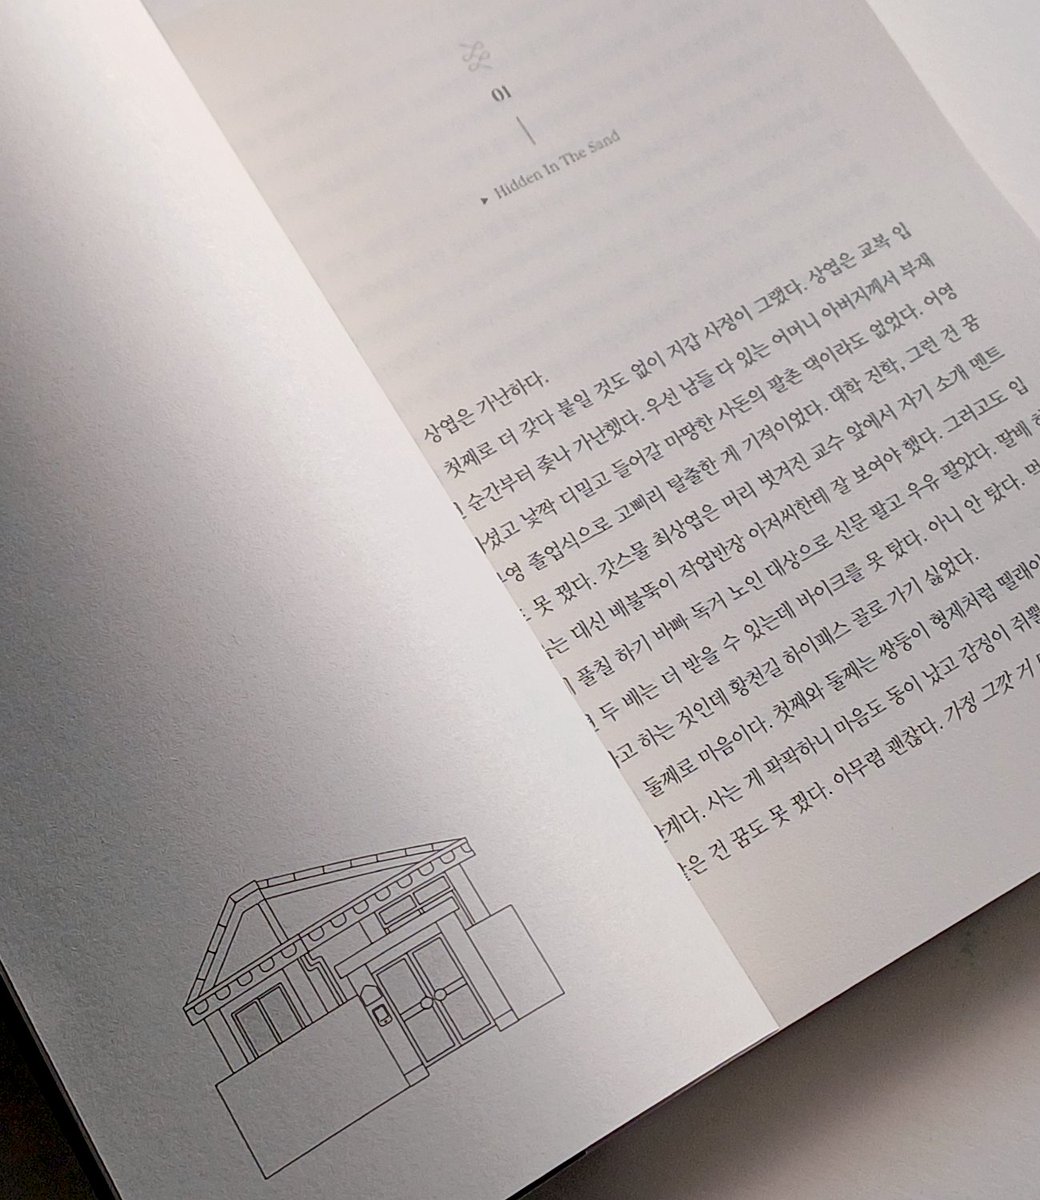 01
▸ Hidden In The Sand
상엽은 가난하다.
첫째로 더 갖다 붙일 것도 없이 지갑 사정이 그랬다. 상엽은 교복 입
순간부터 줒나 가난했다. 우선 남들 다 있는 어머니 아버지께서 부재
낯짝 디밀고 들어갈 마땅한 사돈의 팔촌 댁이라도 없었다. 어영
졸업식으로 고삐리 탈출한 게 기적이었다. 대학 진학, 그런 건 꿈
못 꿨다. 갓스물 최상엽은 머리 벗겨진 교수 앞에서 자기 소개 멘트
대신 배불뚝이 작업반장 아저씨한테 잘 보여야 했다. 그러고도 입
풀칠 하기 바빠 독거 노인 대상으로 신문 팔고 우유 팔았다. 딸배
두 배는 더 받을 수 있는데 바이크를 못 탔다. 아니 안 탔다.
하는 짓인데 황천길 하이패스 골로 가기 싫었다.
둘째로 마음이다. 첫째와 둘째는 쌍둥이 형제처럼 뗄레야
사는 게 팍팍하니 마음도 동이 났고 감정이 쥐뿔
건 꿈도 못 꿨다. 아무렴 괜찮다. 가정 그깟 거